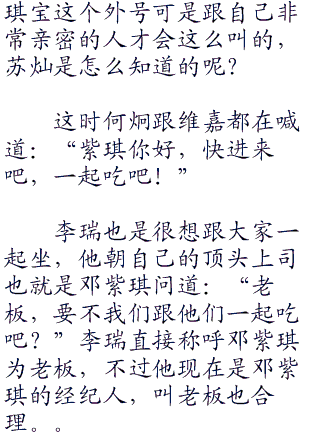 琪宝这个外号可是跟自己非
常亲密的人才会这么叫的，
苏灿是怎么知道的呢？
这时何炯跟维嘉都在喊
道：“紫琪你好，快进来
吧，一起吃吧！”
李瑞也是很想跟大家一
起坐，他朝自己的顶头上司
也就是邓紫琪问道：“老
板，要不我们跟他们一起吃
吧？”李瑞直接称呼邓紫琪
为老板，不过他现在是邓紫
琪的经纪人，叫老板也合
理。。